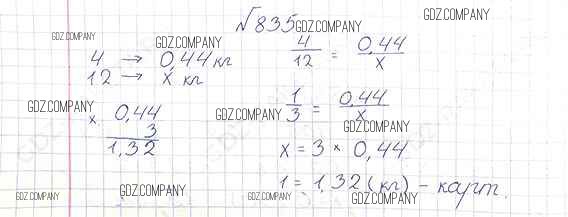 №835 GDZ.COMPANY GDZ.COMPANY
GDZ.COMPANY GDZ.COMPANY
4 → 0,44 кг 4/12 = 0,44/x
12 → x кг
GDZ.COMPANY GDZ.COMPANY
x 0,44 1/3 = 0,44/x
3 GDZ.COMPANY
1,32 x = 3 × 0,44
1 = 1,32 (кг) – карт.
GDZ.COMPANY GDZ.COMPANY GDZ.COMPANY GDZ.COMPANY